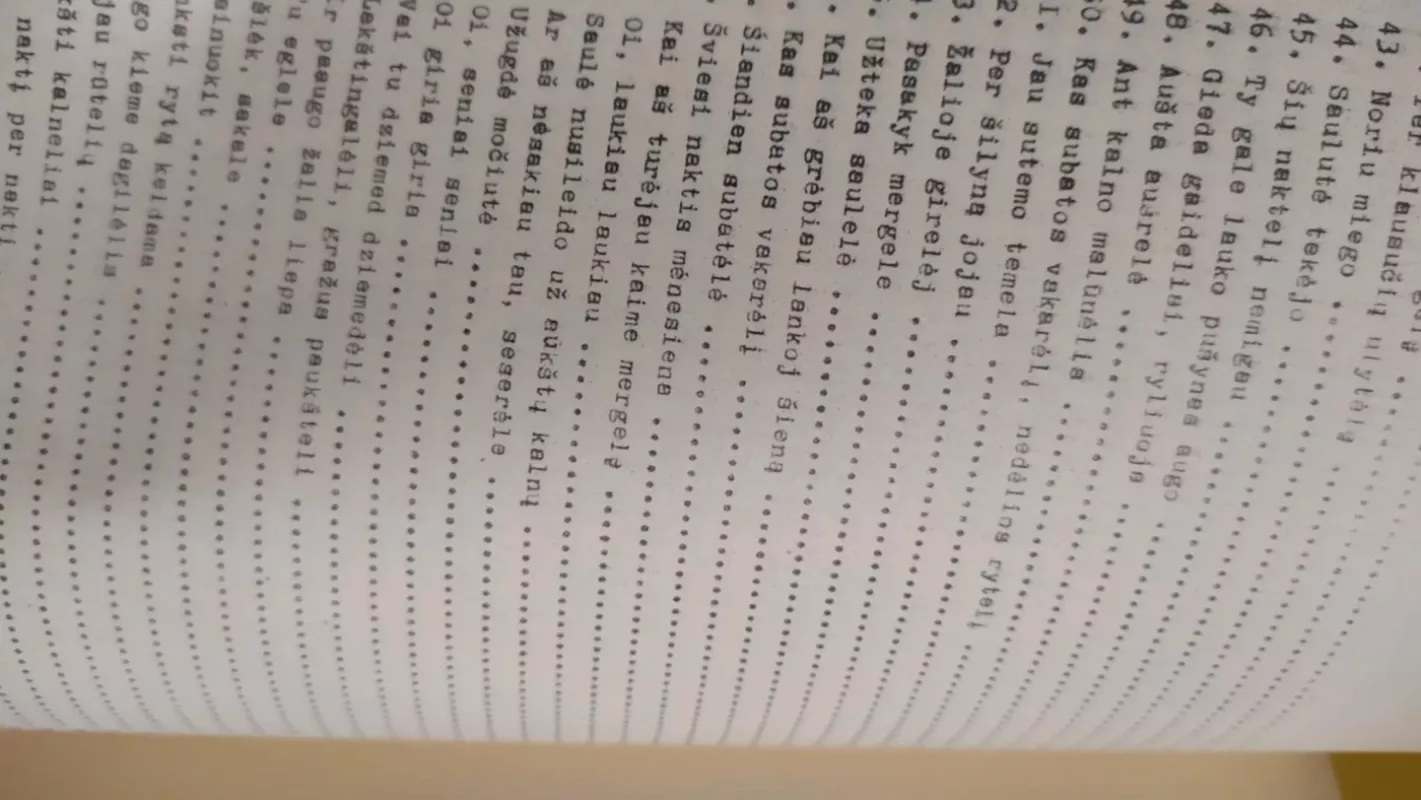 klausučių ulytėlę
43. Noriu miego
44. Saulutė tekėjo
45. Šių naktelį nemigau
46. Ty gale lauko pušynas augo
47. Gieda gaideliai, ryliuoja
48. Aušta aušrelė
49. Ant kalno malūnėlis
50. Kas subatos vakarėlį, nedėlios rytelį
1. Jau sutemo temela
2. Per šilyną jojau
3. Žalioje girelėj
4. Pasakyk mergele
5. Užteka saulelė
. Kai aš grėbiau lankoj šieną
. Kas subatos vakarėlį
. Šiandien subatėlė
. Šviesi naktis mėnesiena
Kai aš turėjau kaime mergelę
Oi, laukiau laukiau
Saulė nusileido už aukštų kalnų
Ar aš nesakiau tau, seserėle
Užugdė močiutė
Oi, seniai seniai
Oi giria giria
vai tu dziemed dziemedėli
Lakštingalėli, gražus paukšteli
ir paaugo žalia liepa
u eglele
šlėk, sakale
ainuokit
nksti rytą keldama
go kieme dagilėlis
jau rūtelių
kšti kalneliai
naktį per naktį